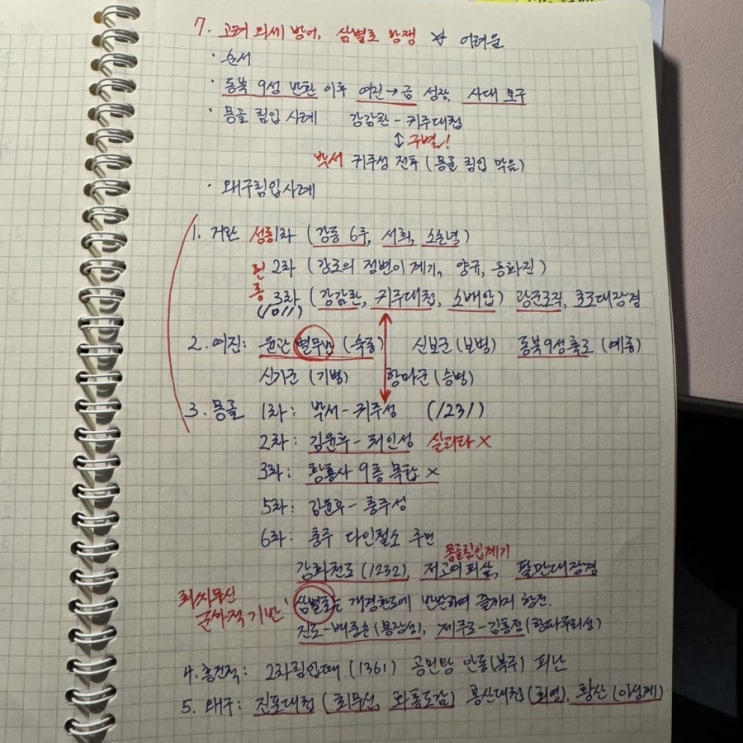 7. 고려 외세 방어, 삼별초 항쟁 ★ 어려움
· 순서
· 동북 9성 반환 이후 여진→금 성장, 사대 요구
· 몽골 침입 사례 강감찬-귀주대첩
↕구별!
박서 귀주성 전투 (몽골 침입 막음)
· 왜구침입사례
1. 거란 성종1차 (강동 6주, 서희, 소손녕)
현 2차 (강조의 정변이 계기, 양규, 통화진)
종 3차 (강감찬, 귀주대첩, 소배압) 광군조직, 초조대장경
(1011)
2. 여진: 윤관 별무반 (숙종) 신보군(보병) 동북9성축조 (예종)
신기군 (기병) 항마군(승병)
3. 몽골 1차: 박서-귀주성 (1231)
2차: 김윤후-처인성 살리타×
3차: 황룡사 9층 목탑 ×
5차: 김윤후-충주성
6차: 충주 다인철소 주민
몽골침입계기
강화천도(1232), 저고여피살, 팔만대장경
최씨무신
군사적 기반 삼별초는 개경환도에 반발하여 끝까지 항전.
진도-배중손(용장성), 제주도-김통정(항파두리성)
4. 홍건적: 2차침입때 (1361) 공민왕 안동(복주) 피난
5. 왜구: 진포대첩 (최무선, 화통도감) 홍산대첩(최영), 황산 (이성계)